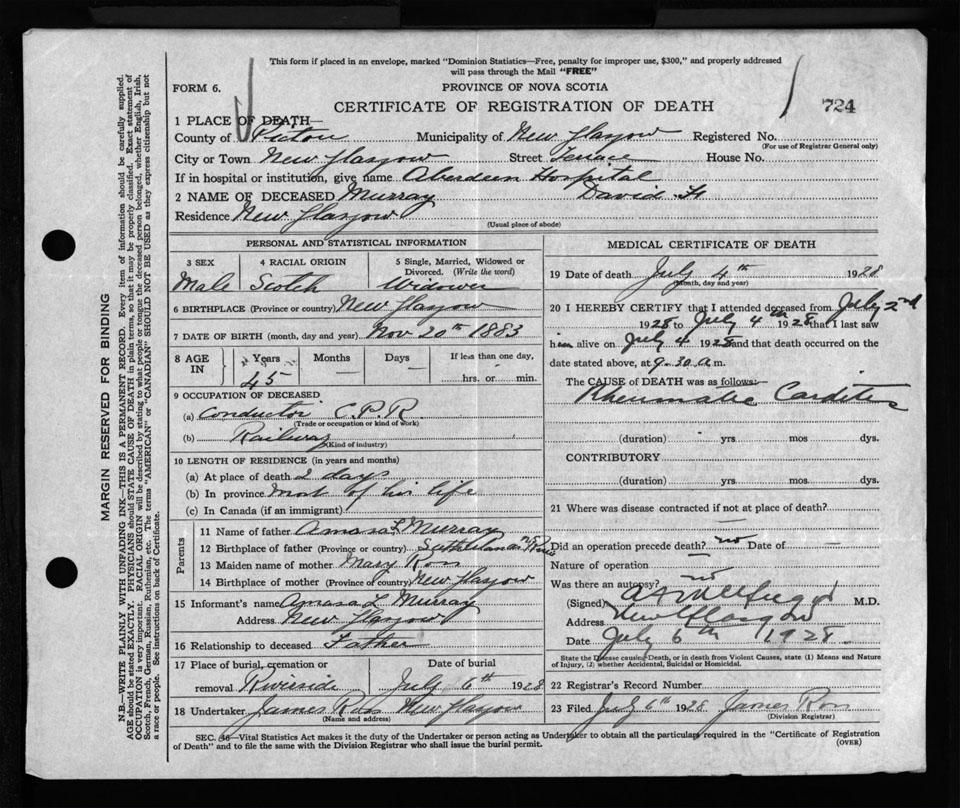 This form if placed in an envelope, marked "Dominion Statistics—Free, penalty for improper use, $300," and properly addressed
will pass through the Mail "FREE"
FORM 6. PROVINCE OF NOVA SCOTIA
CERTIFICATE OF REGISTRATION OF DEATH 724
1 PLACE OF DEATH—
County of Pictou Municipality of New Glasgow Registered No.
(For use of Registrar General only)
City or Town New Glasgow Street Terrace House No.
If in hospital or institution, give name Aberdeen Hospital
2 NAME OF DECEASED Murray David H
Residence New Glasgow
(Usual place of abode)
PERSONAL AND STATISTICAL INFORMATION
3 SEX 4 RACIAL ORIGIN 5 Single, Married, Widowed or
Divorced. (Write the word)
Male Scotch Widower
6 BIRTHPLACE (Province or country) New Glasgow
7 DATE OF BIRTH (month, day and year) Nov 20th 1883
8 AGE IN Years Months Days If less than one day,
45 — — hrs. or min.
9 OCCUPATION OF DECEASED
(a) Conductor C.P.R.
(Trade or occupation or kind of work)
(b) Railway
(Kind of industry)
10 LENGTH OF RESIDENCE (in years and months)
(a) At place of death 2 days
(b) In province most of his life
(c) In Canada (if an immigrant)
Parents
11 Name of father Amasa L Murray
12 Birthplace of father (Province or country)
13 Maiden name of mother Mary Ross
14 Birthplace of mother (Province or country) New Glasgow
15 Informant's name Amasa L Murray
Address New Glasgow
16 Relationship to deceased Father
17 Place of burial, cremation or Date of burial
removal Riverside July 6th 1928
18 Undertaker James Ross New Glasgow
(Name and address)
MEDICAL CERTIFICATE OF DEATH
19 Date of death July 4th 1928
(Month, day and year)
20 I HEREBY CERTIFY that I attended deceased from July 2nd
1928 to July 4th 1928 that I last saw
him alive on July 4 1928 and that death occurred on the
date stated above, at 9-30 a.m.
The CAUSE of DEATH was as follows:
Rheumatic Carditis
(duration) yrs mos dys.
CONTRIBUTORY
(duration) yrs. mos. dys.
21 Where was disease contracted if not at place of death?
Did an operation precede death? no Date of —
Nature of operation —
Was there an autopsy? no
(Signed) M.D.
Address New Glasgow
Date July 6th 1928.
State the Disease causing Death, or in death from Violent Causes, state (1) Means and Nature
of Injury, (2) whether Accidental, Suicidal or Homicidal.
22 Registrar's Record Number
23 Filed July 6th 1928 James Ross
(Division Registrar)
SEC. 36—Vital Statistics Act makes it the duty of the Undertaker or person acting as Undertaker to obtain all the particulars required in the "Certificate of Registration
of Death" and to file the same with the Division Registrar who shall issue the burial permit. (OVER)
MARGIN RESERVED FOR BINDING
N.B.—WRITE PLAINLY WITH UNFADING INK—THIS IS A PERMANENT RECORD. Every item of information should be carefully supplied.
AGE should be stated EXACTLY. PHYSICIANS should STATE CAUSE OF DEATH in plain terms, so that it may be properly classified. Exact statement of
OCCUPATION is very important. RACIAL ORIGIN will be described by stating to what people or tongue the deceased person belonged, whether English, Irish,
Scotch, French, German, Russian, Ruthenian, etc. The terms "AMERICAN" or "CANADIAN" SHOULD NOT BE USED as they express citizenship but not
a race or people. See instructions on back of Certificate.